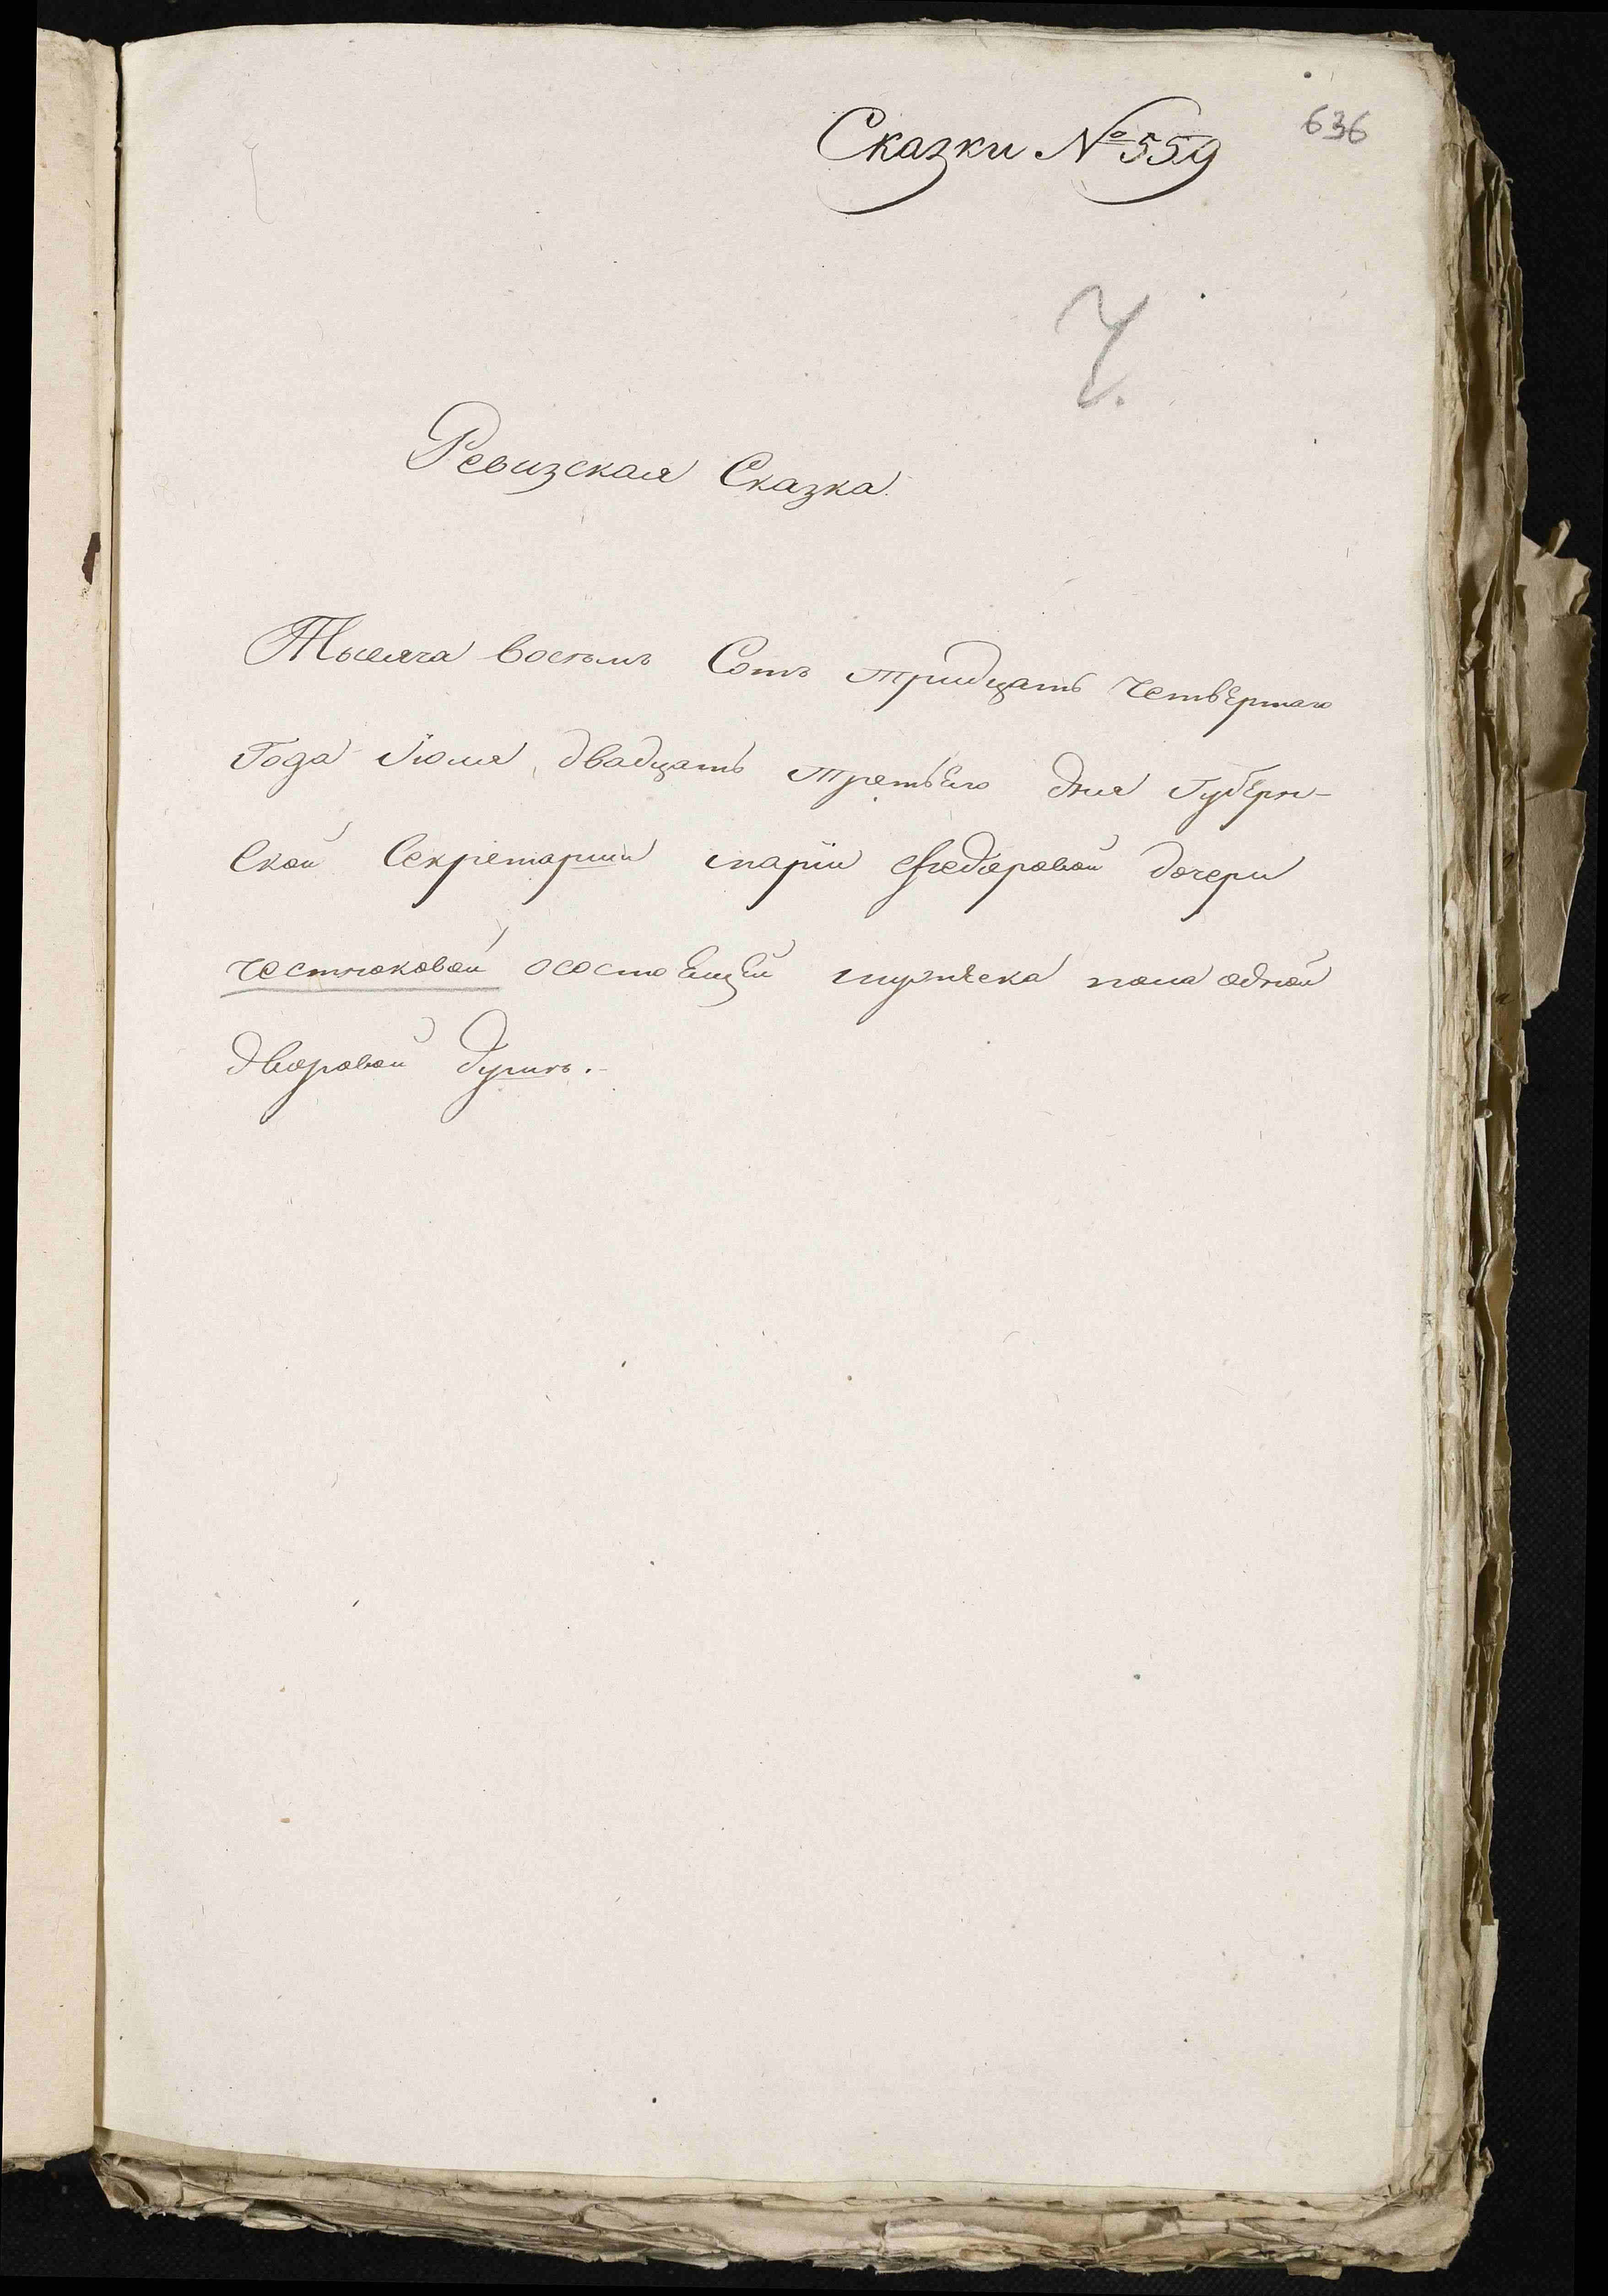 636
Сказки № 559
Ч.
Ревизская Сказка.
Тысяча восемь Сотъ тридцать четвертаго
Года Июля двадцать третьего дня Губерн-
ской Секретарши марiи Федоровой дочери
честноковой осостоещей мужеска пола одной
дворовой душъ.-